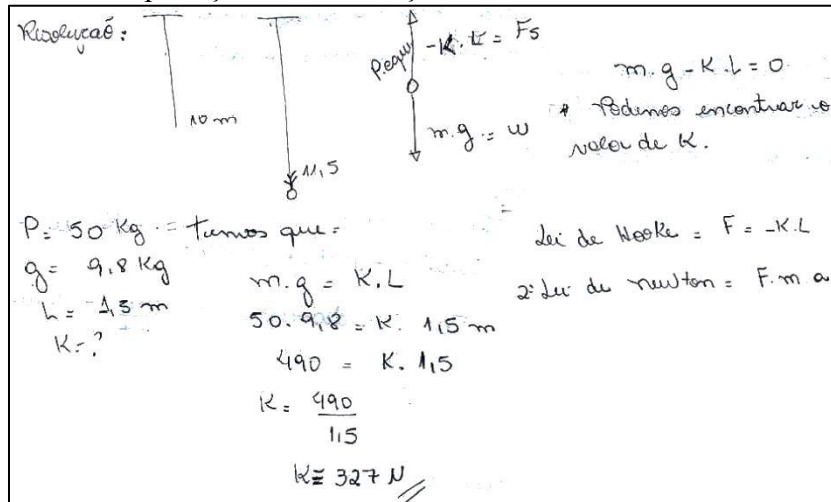 Resolução:
10 m
11,5
P. equi
-K.L = Fs
m.g = w
m.g - K.L = 0
* Podemos encontrar o
valor de K.
P = 50 Kg = temos que =
g = 9,8 Kg
L = 1,5 m
K = ?
m.g = K.L
50. 9,8 = K. 1,5 m
490 = K. 1,5
K = 490
1,5
K ≅ 327 N
Lei de Hooke = F = -K.L
2ª Lei de newton = F. m. a